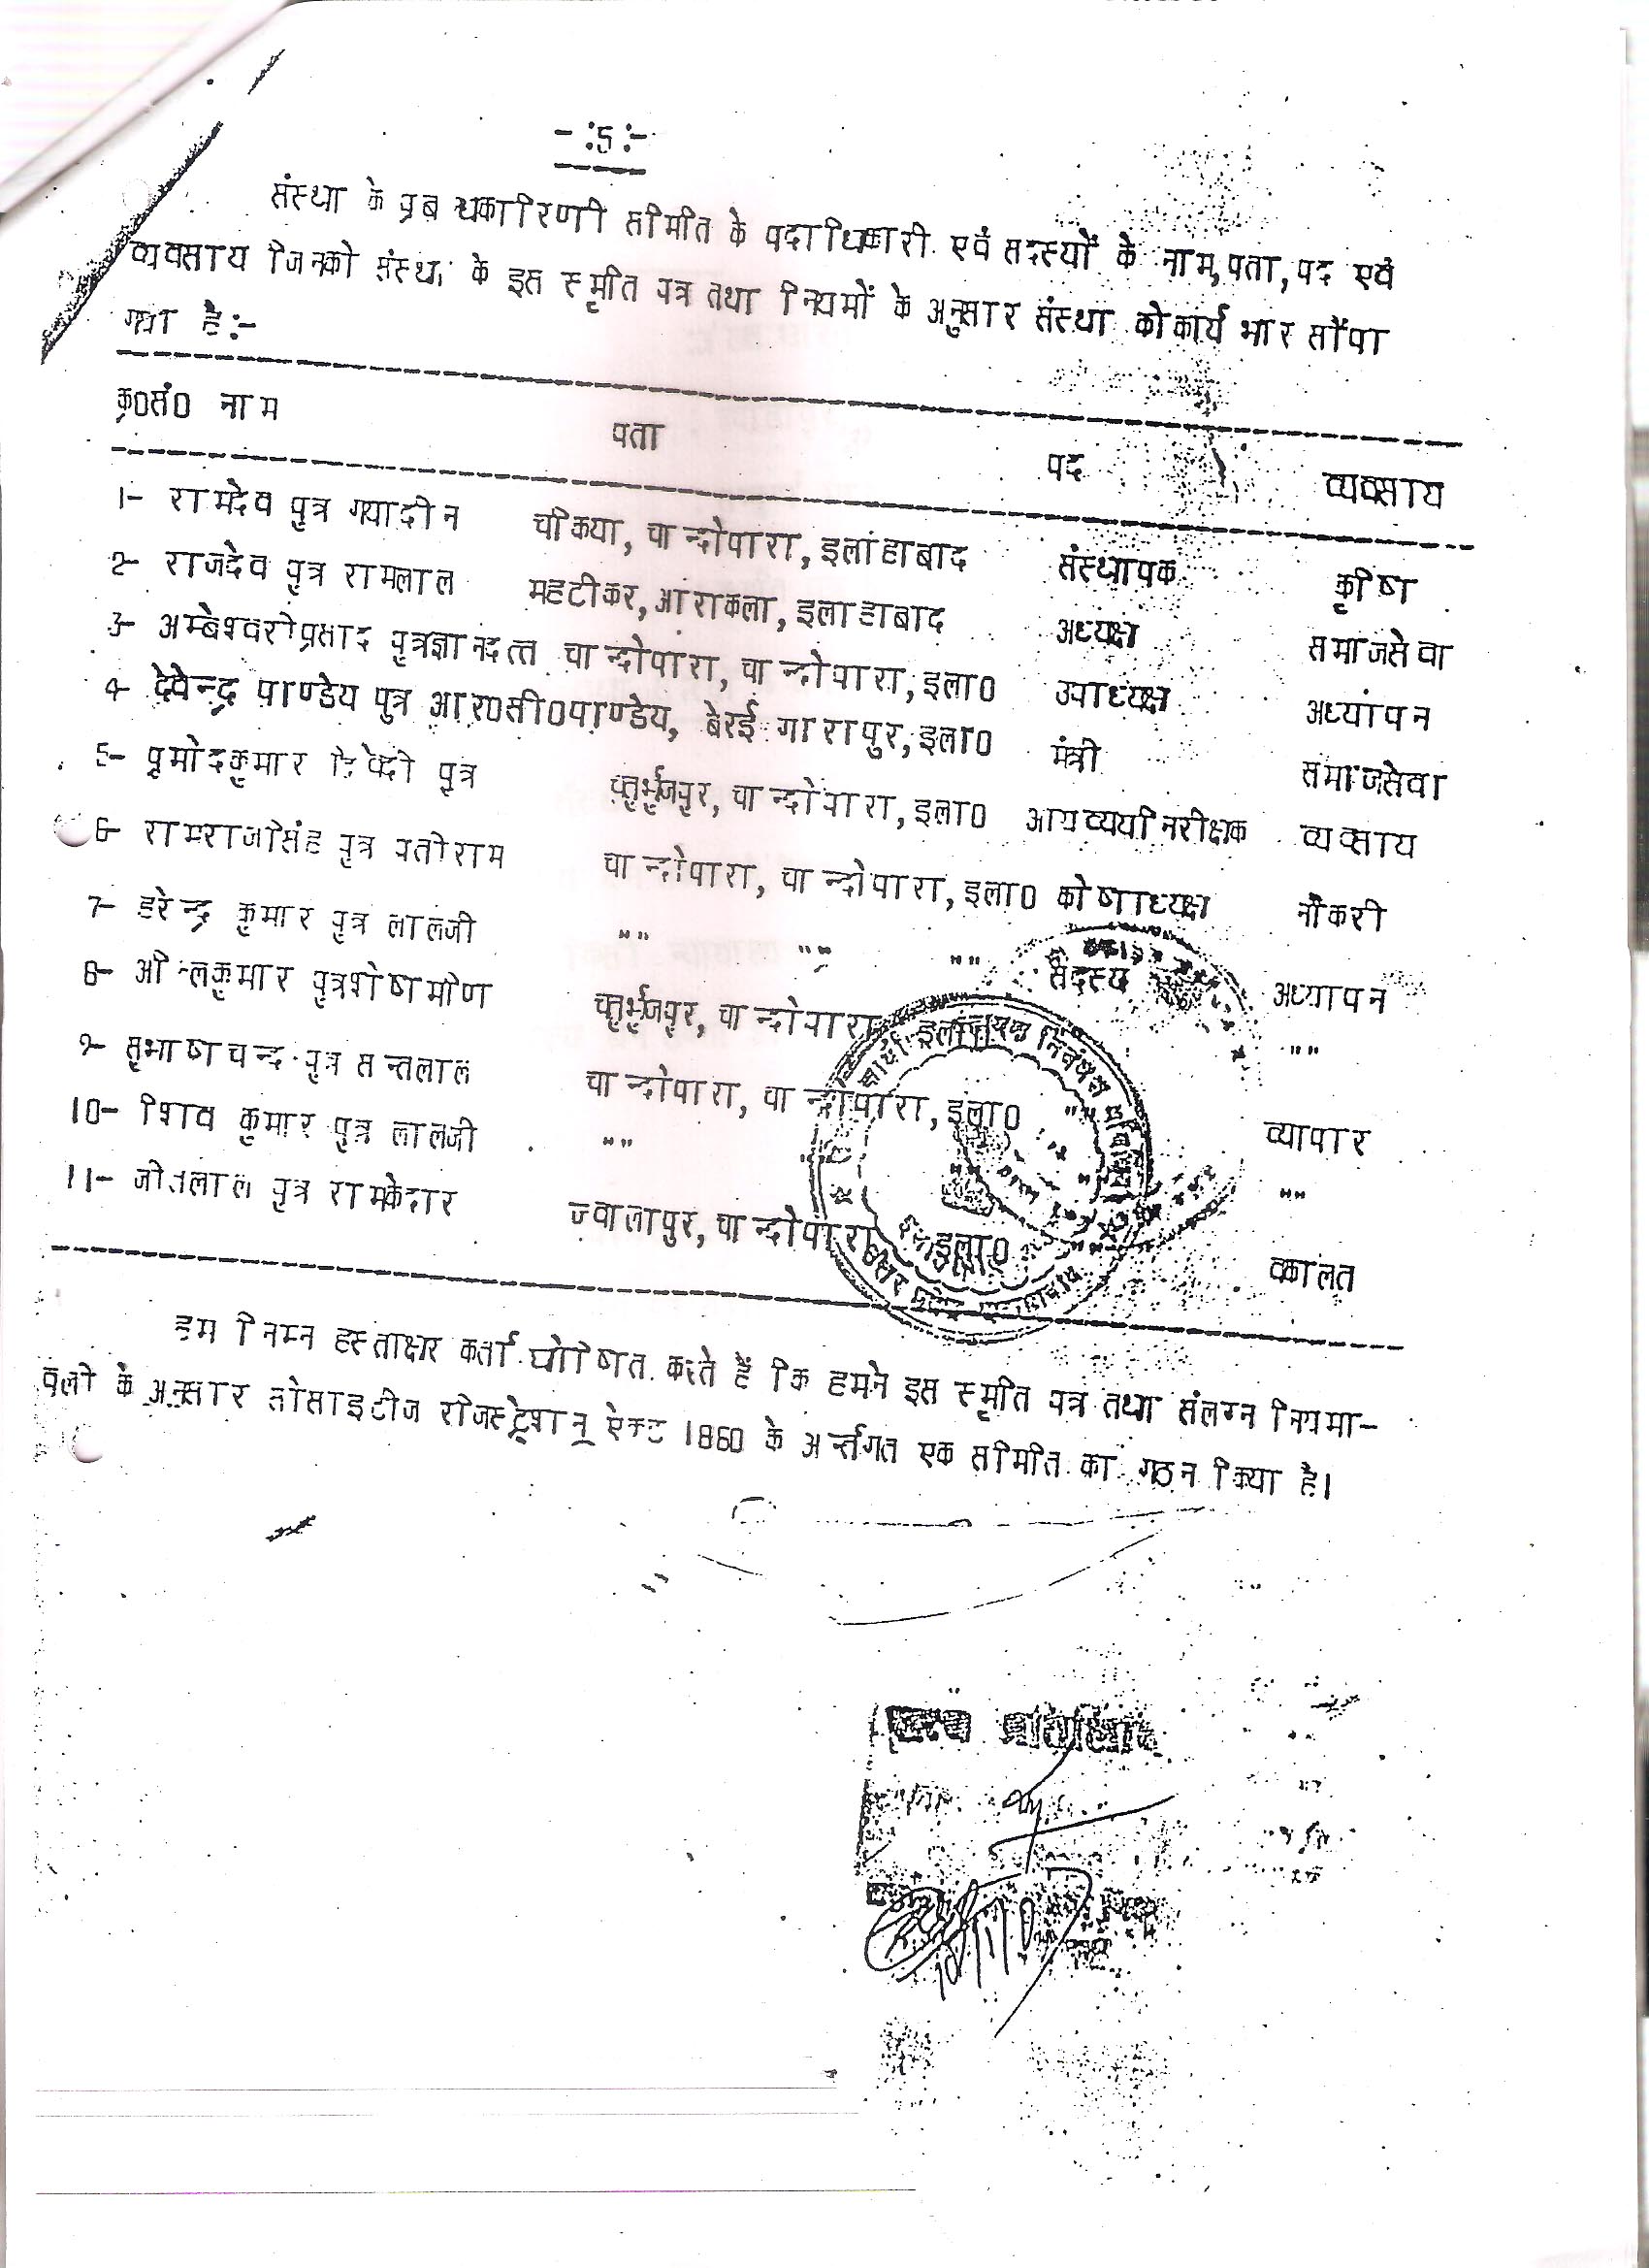 -:5:-
संस्था के प्रबन्धकारिणी समिति के पदाधिकारी एवं सदस्यों के नाम,पता,पद एवं
व्यवसाय जिनको संस्था के इस स्मृति पत्र तथा नियमों के अनुसार संस्था को कार्य भार सौंपा
गया है:-
क्र0सं0 नाम पता पद व्यवसाय
1- रामदेव पुत्र गयादीन चकिया, चान्दोपारा, इलाहाबाद संस्थापक कृषि
2- राजदेव पुत्र रामलाल महटीकर, आराकला, इलाहाबाद अध्यक्ष समाजसेवा
3- अम्बेश्वरीप्रसाद पुत्रज्ञानदत्त चान्दोपारा, चान्दोपारा, इला0 उपाध्यक्ष अध्यापन
4- देवेन्द्र पाण्डेय पुत्र आर0सी0पाण्डेय, बेरई गारापुर, इला0 मंत्री समाजसेवा
5- प्रमोदकुमार द्विवेदी पुत्र चतुर्भुजपुर, चान्दोपारा, इला0 आयव्ययनिरीक्षक व्यवसाय
6- रामराजसिंह पुत्र पतीराम चान्दोपारा, चान्दोपारा, इला0 कोषाध्यक्ष नौकरी
7- हरेन्द्र कुमार पुत्र लालजी "" "" "" सदस्य अध्यापन
8- अनिलकुमार पुत्रशेषमणि चतुर्भुजपुर, चान्दोपारा, इला0 ""
9- सुभाषचन्द्र पुत्र सन्तलाल चान्दोपारा, चान्दोपारा, इला0 "" व्यापार
10- शिव कुमार पुत्र लालजी "" "" "" "" ""
11- जीतलाल पुत्र रामकेदार ज्वालापुर, चान्दोपारा, इला0 "" वकालत
हम निम्न हस्ताक्षर कर्ता घोषित करते हैं कि हमने इस स्मृति पत्र तथा संलग्न नियमा-
वली के अनुसार सोसाइटीज रजिस्ट्रेशन ऐक्ट 1860 के अर्न्तगत एक समिति का गठन किया है।
सत्य प्रतिलिपि